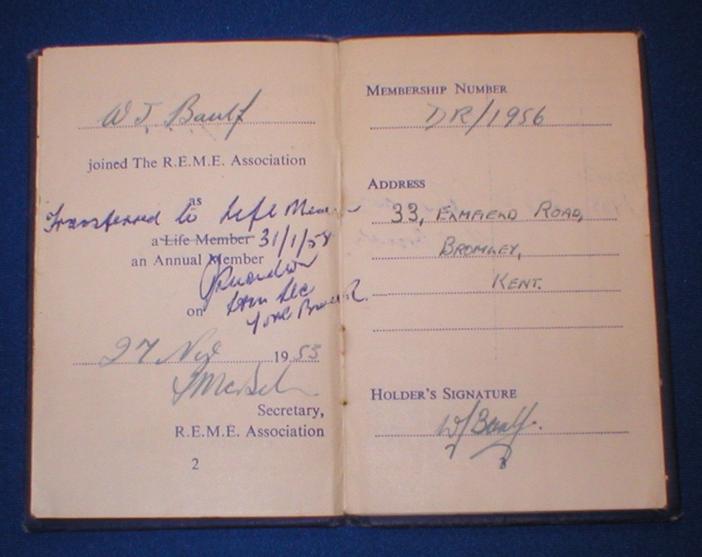 W J Baulf
joined The R.E.M.E. Association
as
Transferred to Life Mem
a Life Member 31/1/58
an Annual Member
on Hon Sec
27 Nov 1953
Secretary,
R.E.M.E. Association
2
MEMBERSHIP NUMBER
DR/1956
ADDRESS
33, ELMFIELD ROAD,
BROMLEY,
KENT.
HOLDER'S SIGNATURE
WJ Baulf.
3